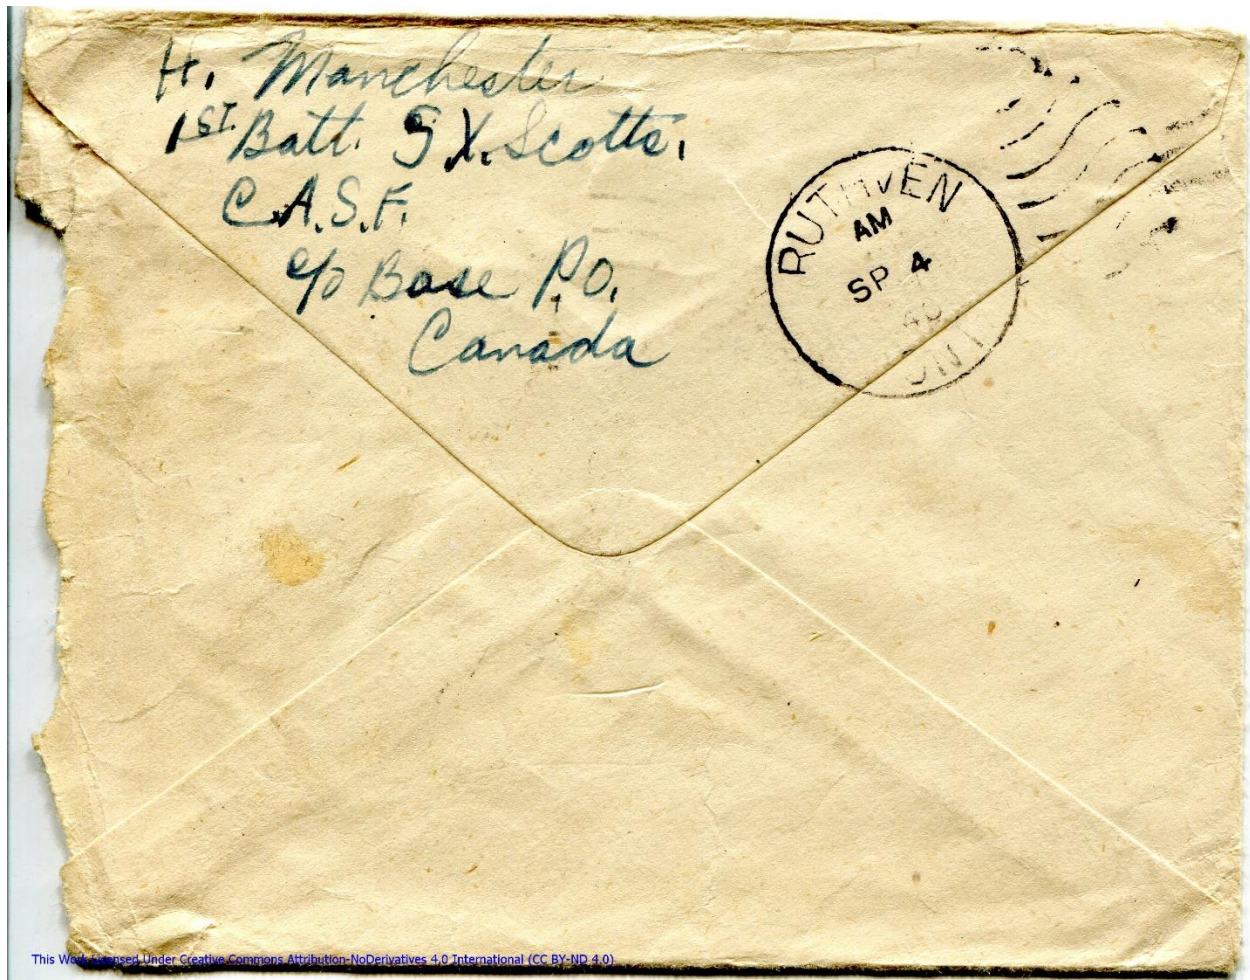 H. Manchester
1ST Batt. S.X. Scotts.
C.A.S.F.
c/o Base P.O.
Canada
RUTHVEN
AM
SP 4
40
ONT
This Work Licensed Under Creative Commons Attribution-NoDerivatives 4.0 International (CC BY-ND 4.0)